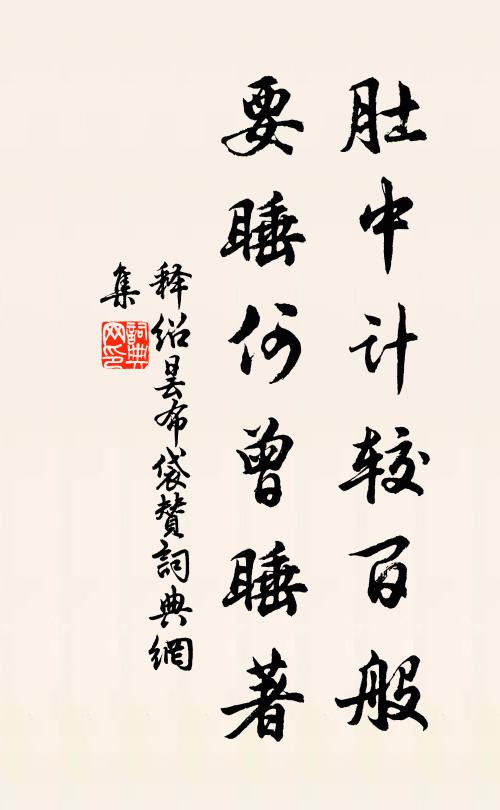 肚中计较百般
要睡何曾睡著
释绍昙布袋赞詞典網
集
詞典
网印